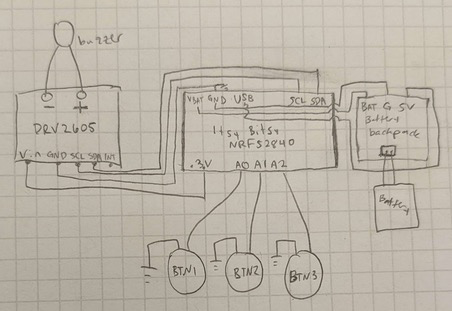 buzzer
- +
DRV2605
Vin GND SCL SDA INT
VBAT GND USB SCL SDA
Itsy Bitsy
NRF52840
.3V
A0 A1 A2
BAT G 5V
Battery
backpack
Battery
BTN1
BTN2
BTN3